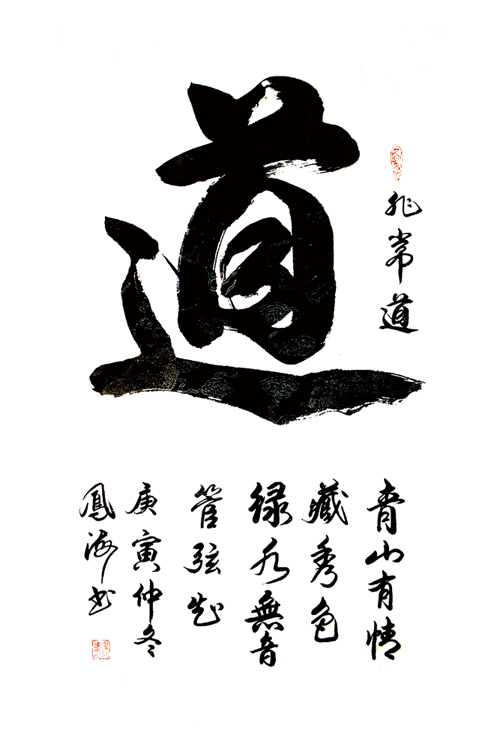 道
非常道
青山有情
藏秀色
绿水無音
管弦
庚寅仲冬
鳳海书